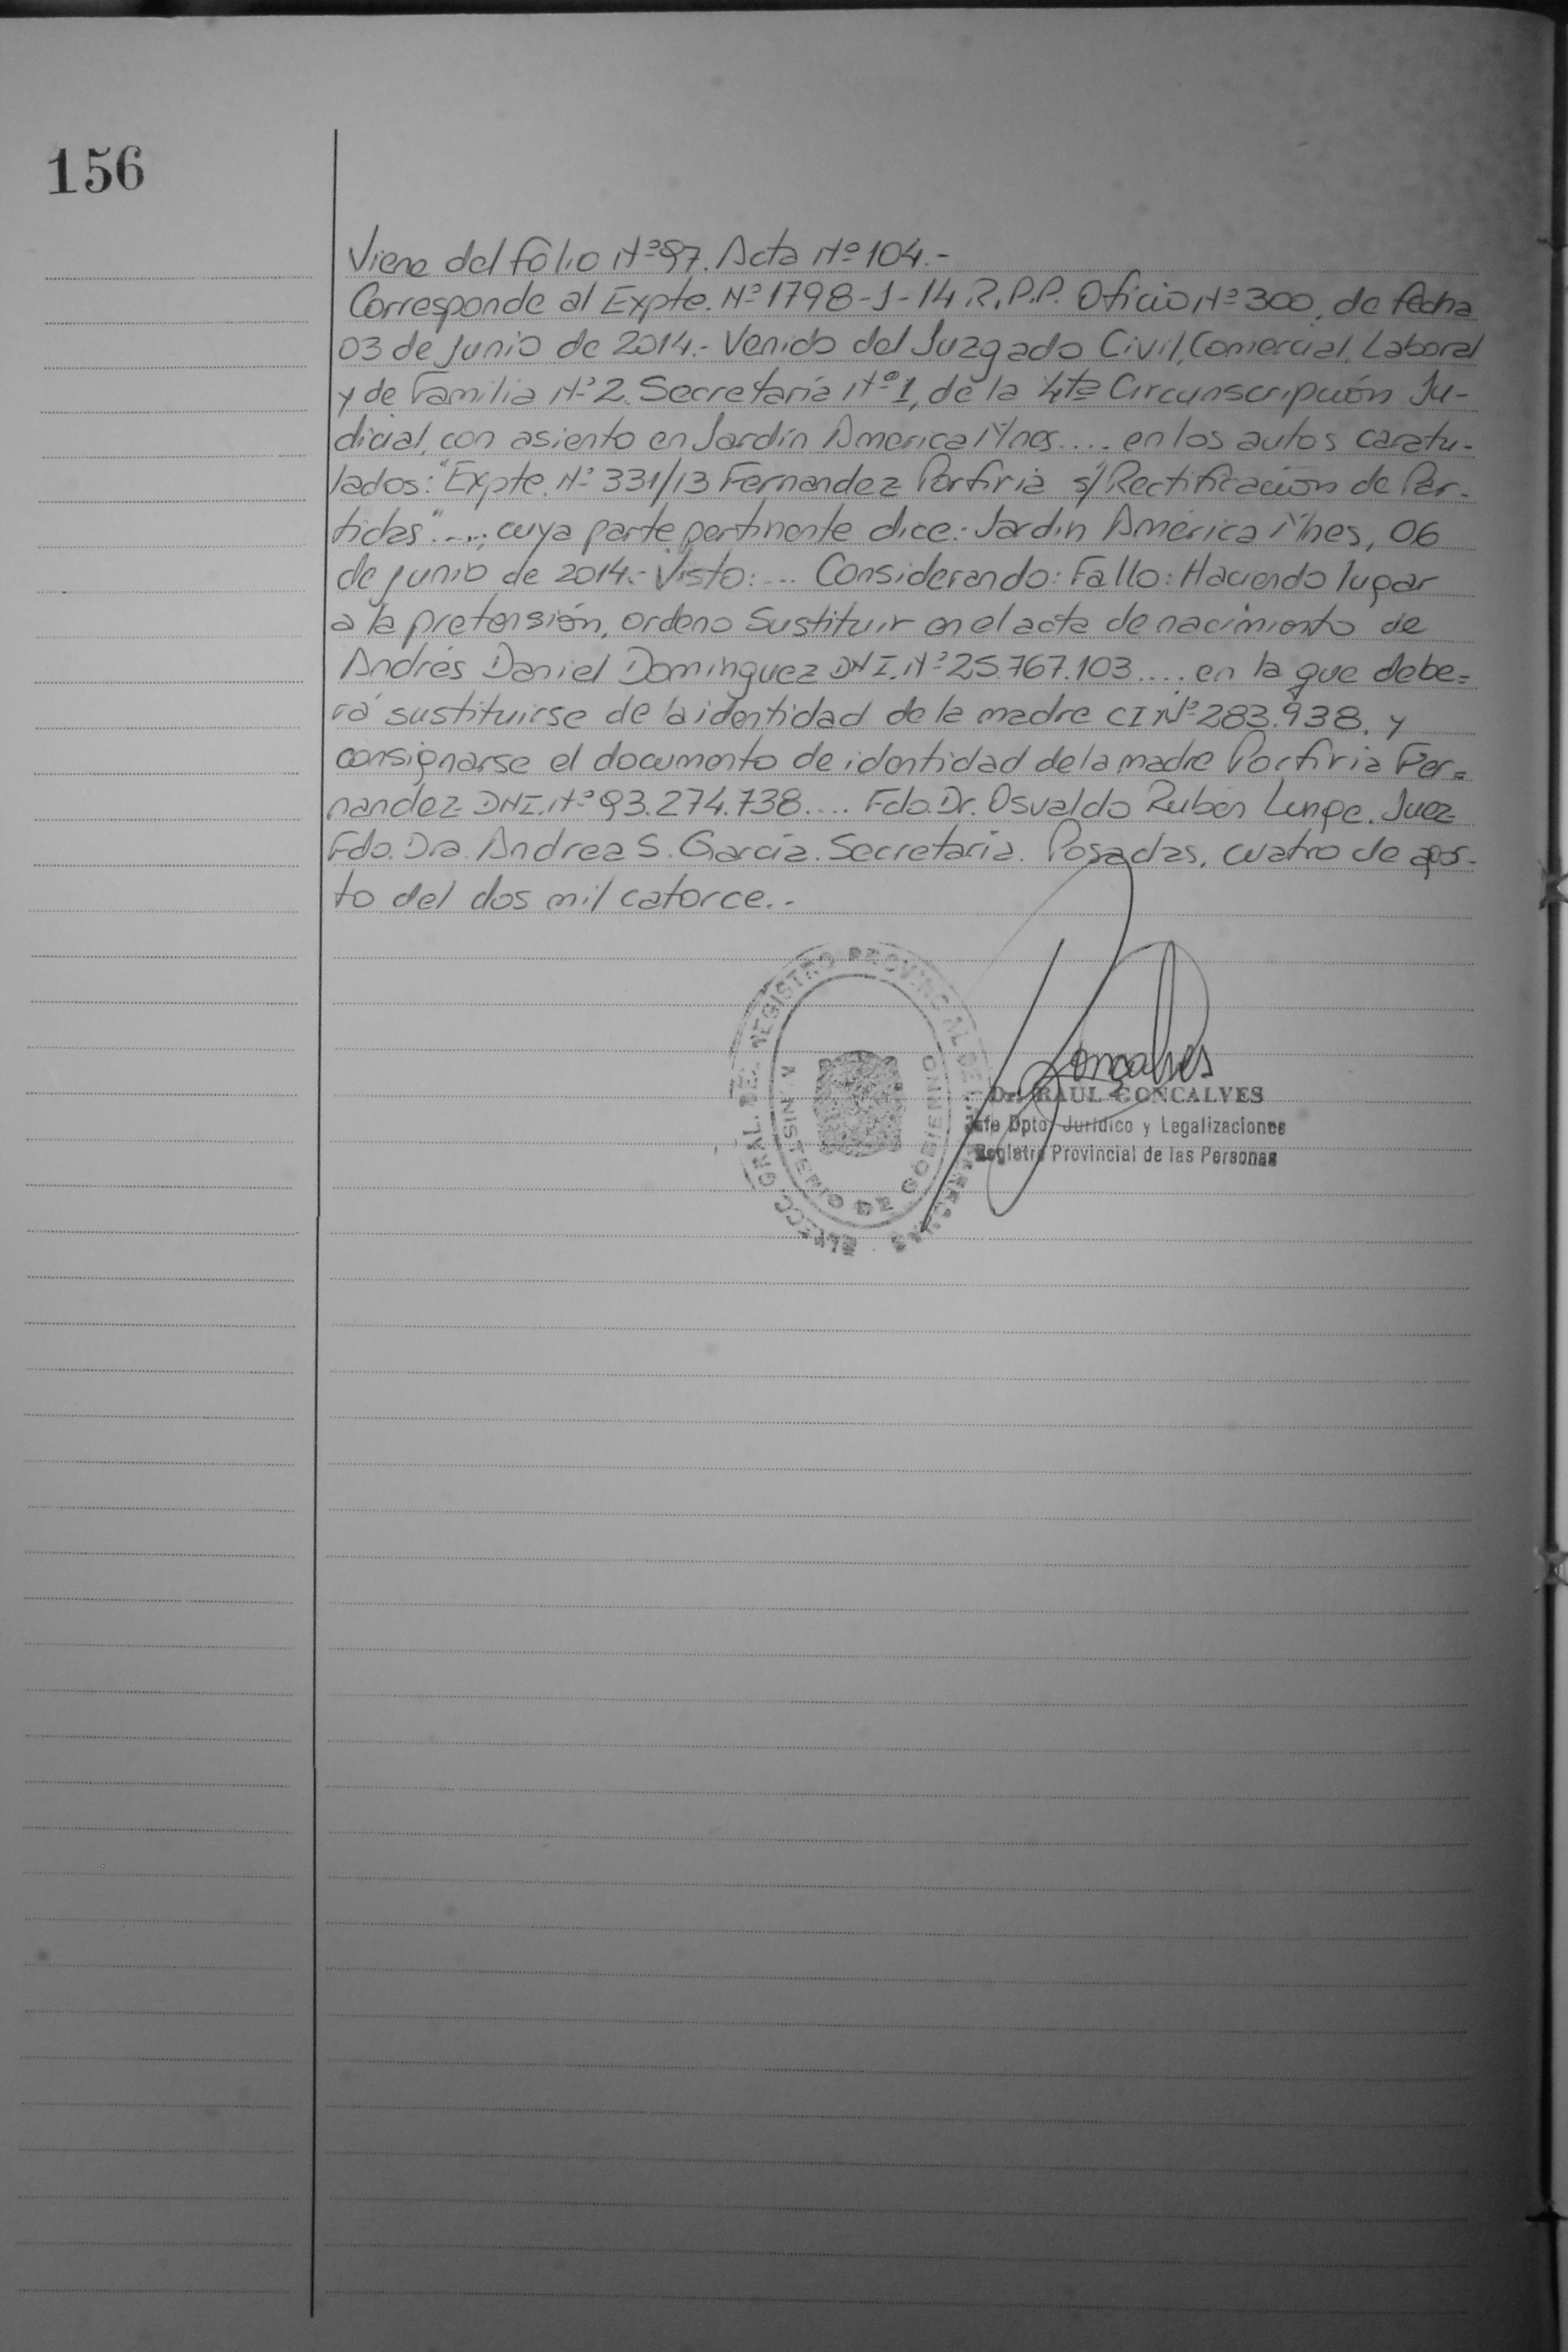 156
Viene del folio Nº 97. Acta Nº 104.-
Corresponde al Expte. Nº 1798-J-14 R.P.P. Oficio Nº 300, de fecha
03 de Junio de 2014.- Venido del Juzgado Civil, Comercial, Laboral
y de Familia Nº 2. Secretaría Nº 1, de la 4ta Circunscripción Ju-
dicial, con asiento en Jardín America Mnes.... en los autos caratu-
lados: "Expte. Nº 331/13 Fernandez Porfiria s/ Rectificación de Par-
tidas"...., cuya parte pertinente dice:- Jardín América Mnes, 06
de Junio de 2014.- Visto:... Considerando: Fallo: Haciendo lugar
a la pretensión, ordeno Sustituir en el acta de nacimiento de
Andrés Daniel Dominguez DNI. Nº 25.767.103.... en la que debe=
rá sustituirse de la identidad de la madre CI Nº 283.938. y
consignarse el documento de identidad de la madre Porfiria Fer=
nandez DNI. Nº 93.274.738.... Fdo. Dr. Osvaldo Rubén Lunge. Juez
Fdo. Dra. Andrea S. García. Secretaria. Posadas, cuatro de agos-
to del dos mil catorce.-
DIRECC. GRAL. DEL REGISTRO PROVINCIAL DE LAS PERSONAS
MINISTERIO DE GOBIERNO
Goncalves
Dr. RAUL GONCALVES
Jefe Dpto. Jurídico y Legalizaciones
Registro Provincial de las Personas